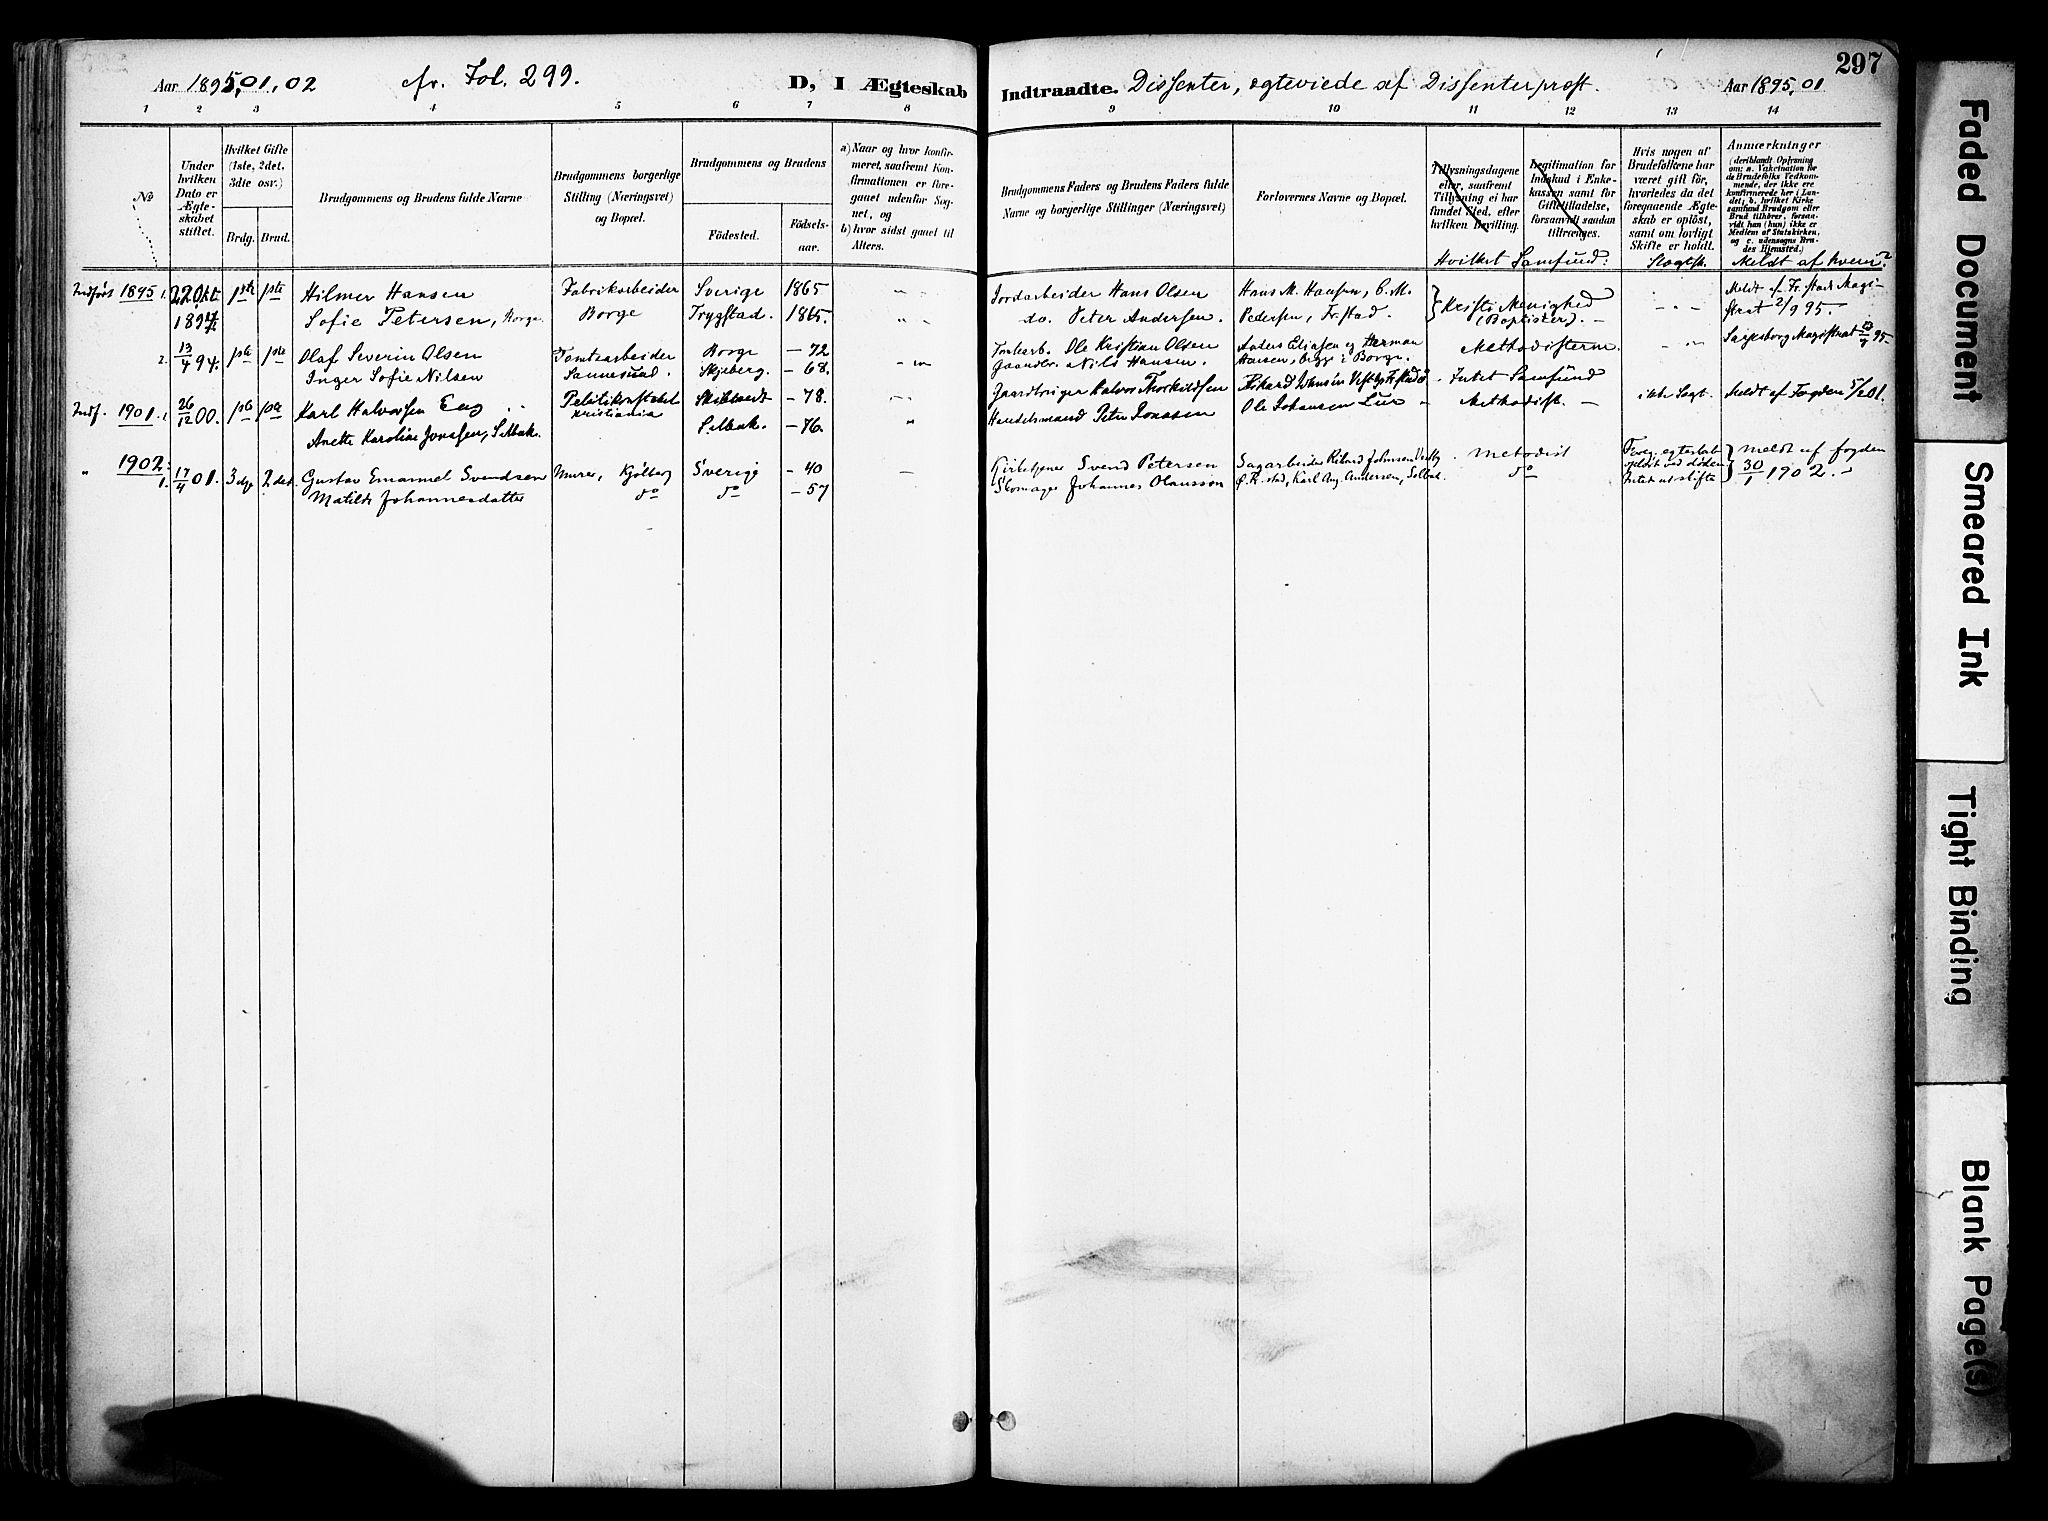 297
Aar 1895, 01, 02
cfr. Fol. 299.
D, I Ægteskab Indtraadte. Dissenter, ægteviede af Dissenterpræst.
Aar 1895, 01
1 2 3 4 5 6 7 8 9 10 11 12 13 14
No
Under hvilken Dato er Ægteskabet stiftet.
Hvilket Gifte (1ste, 2det, 3dte osv.)
Brdg. Brud.
Brudgommens og Brudens fulde Navne
Brudgommens borgerlige Stilling (Næringsvei) og Bopæl.
Brudgommens og Brudens
Födested.
Födselsaar.
a) Naar og hvor konfirmeret, saafremt Konfirmationen er foregaaet udenfor Sognet, og
b) hvor sidst gaaet til Alters.
Brudgommens Faders og Brudens Faders fulde Navne og borgerlige Stillinger (Næringsvei)
Forlovernes Navne og Bopæl.
Tillysningsdagene eller, saafremt Tillysning ei har fundet Sted, efter hvilken Bevilling.
Legitimation for Indskud i Enkekassen samt for Giftetilladelse, forsaavidt saadan tiltrænges.
Hvilket Samfund:
Hvis nogen af Brudefolkene har været gift før, hvorledes da det foregaaende Ægteskab er opløst, samt om lovligt Skifte er holdt.
Slægtsk.
Anmærkninger
(deriblandt Oplysning om: a. Vakcination for de Brudefolks Vedkommende, der ikke ere konfirmerede her i Landet; b. hvilket Kirkesamfund Brudgom eller Brud tilhører, forsaavidt han (hun) ikke er Medlem af Statskirken, og c. udensogns Brudes Hjemsted.)
Meldt af hvem?
Indført 1895 1. 22 Okt. 1ste 1ste Hilmer Hansen Fabrikarbeider Sverige 1865 Jordarbeider Hans Olsen Hans M. Hansen, C. M. Kristi Menighed Meldt af Fr.stad Magi-
189 Sofie Petersen, Borge. Borge Trygstad. 1865. do. Peter Andersen. Pedersen, Fr.stad. (Baptister). - strat 2/9 95.
2. 13/4 94. 1ste 1ste Olaf Severin Olsen Tomtearbeider Borge - 72 Tomtearb. Ole Kristian Olsen Anders Eliasen og Herman Methodisterne Sarpsborg Magistrat 95
Inger Sofie Nilsen Sannesund. Skjeberg. - 68. Gaardbr. Nils Hansen. Hansen, begge i Borge.
Indf. 1901. 1. 26/12 00. 1ste 1ste Karl Halvorsen Eeg Politikonstabel - 78. Gaardbruger Halvor Thorkildsen Rikard Johnsen Intet Samfund ikke Slægt. Meldt af Fogden 5/2 01.
Anette Karoline Jonassen, Selbak. Kristiania Selbak. - 76. Handelsmand Peter Jonassen Ole Johansen Lur Methodist. -
" 1902: 1. 17/4 01. 3dje 2det Gustav Emanuel Svendsen Murer, Kjølberg Sverige - 40 Kirketjener Svend Petersen Sagarbeider Rikard Johnsen metodist Meldt af fogden
Matilde Johannesdatter do do - 57 Skomager Johannes Olausson Karl Aug. Andersen, Selbak. do 30/1 1902.
Faded Document
Smeared Ink
Tight Binding
Blank Page(s)